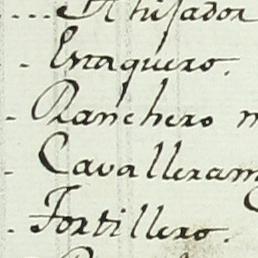 ....Ahijador
- Estaquero.
- Ranchero m
- Cavalleram
- Tortillero.